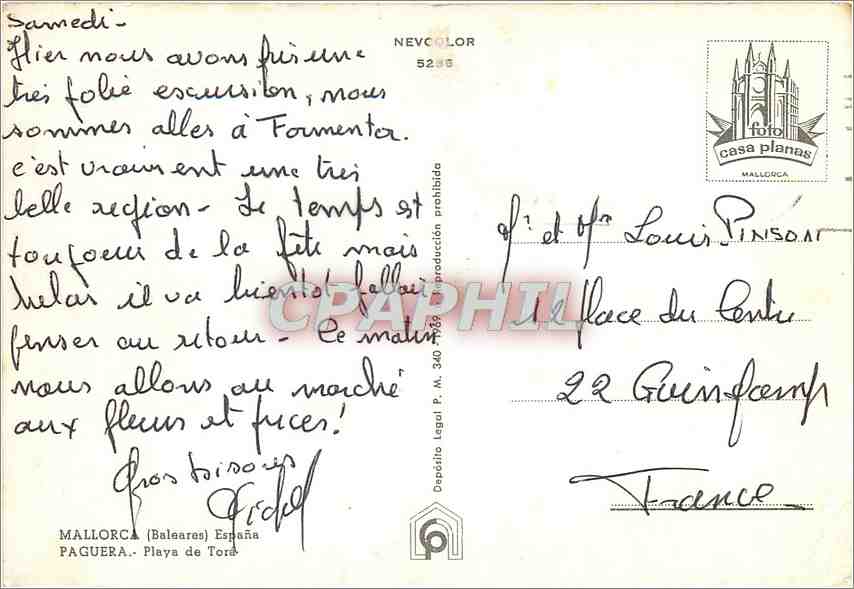 Samedi -
Hier nous avons pris une
très jolie excursion, nous
sommes alles à Formentor.
c'est vraiment une très
belle region - Le temps est
toujours de la fête mais
helas il va bientot falloir
penser au retour - Ce matin
nous allons au marché
aux fleurs et puces!
Gros bisous
MALLORCA (Baleares) España
PAGUERA.- Playa de Tora
NEVCOLOR
5286
Depósito Legal P. M. 340 - 1969 Reproducción prohibida
CPAPHIL
foto
casa planas
MALLORCA
Mr et Mme Louis PINSON
12 place du Centre
22 Guingamp
France